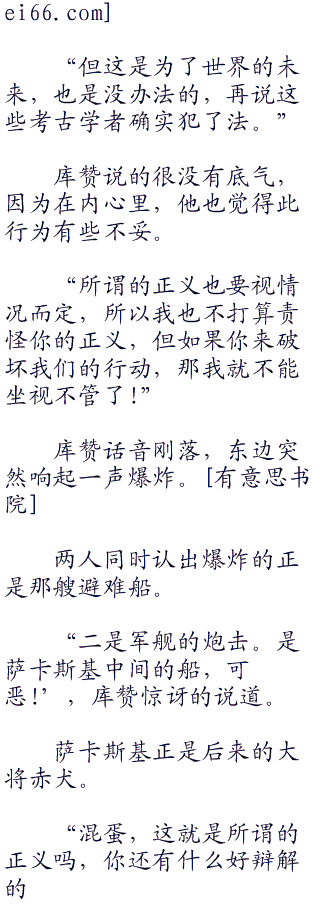 ei66.com]
“但这是为了世界的未
来，也是没办法的，再说这
些考古学者确实犯了法。”
库赞说的很没有底气，
因为在内心里，他也觉得此
行为有些不妥。
“所谓的正义也要视情
况而定，所以我也不打算责
怪你的正义，但如果你来破
坏我们的行动，那我就不能
坐视不管了！”
库赞话音刚落，东边突
然响起一声爆炸。[有意思书
院]
两人同时认出爆炸的正
是那艘避难船。
“二是军舰的炮击。是
萨卡斯基中间的船，可
恶！’，库赞惊讶的说道。
萨卡斯基正是后来的大
将赤犬。
“混蛋，这就是所谓的
正义吗，你还有什么好辩解
的